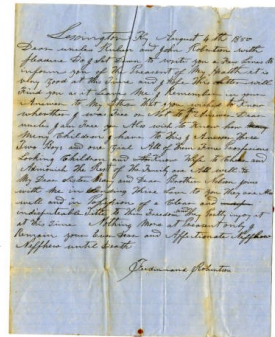 Lexington Ky August 6 th 1850
Dear uncles Reuben and John Robertson with
pleasure I Set down to write you a few Lines to
inform you of the Treasurt of My Health it is
very good at the and I hope this letter will
find you as it Leave Me I Remember in your
Answer to My letter that you wished to know
whether I was free or Not I Answer Dear
uncle I am free or Also wished to know how Many
Children I have to this I Answer Three
Two Boys and one Girl All of them fine
Looking Children and Wife to them and
the Rest of the family are All well to
My Dear Sister Mary and Dear Brother Nelson joins
with Me in Sending There Love to you they are
well and in of a Clear and
indisputeable Title to their freedom they both enjoy at
this time Nothing More at Present only I
Remain your free and Affectionate Neffhew
Neffhew until Death
Ferdinand Robertson